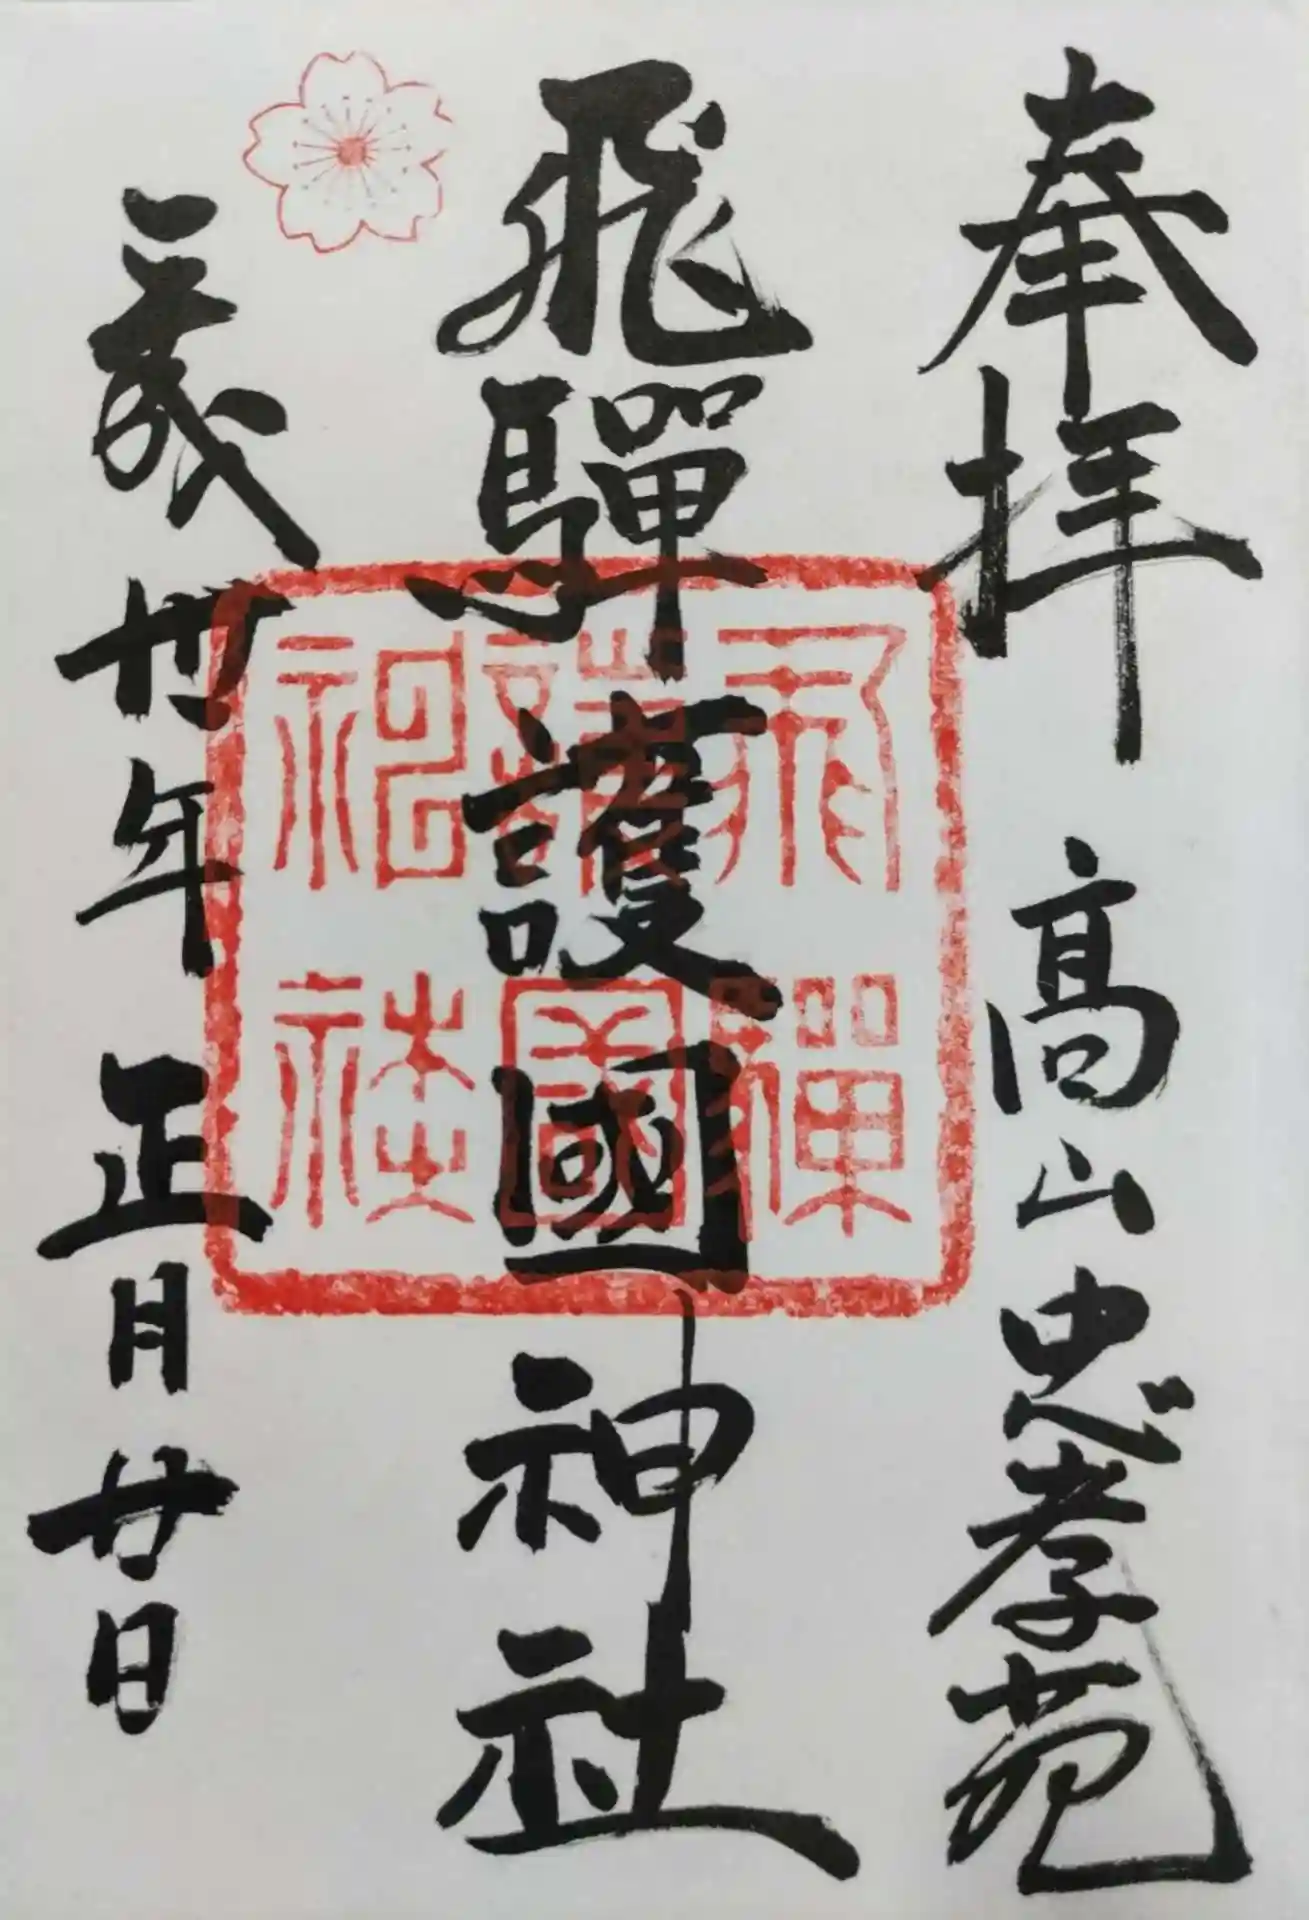 奉拝 高山忠孝苑
飛驒護國神社
平成丗年 正月廿日
飛驒
護國
神社